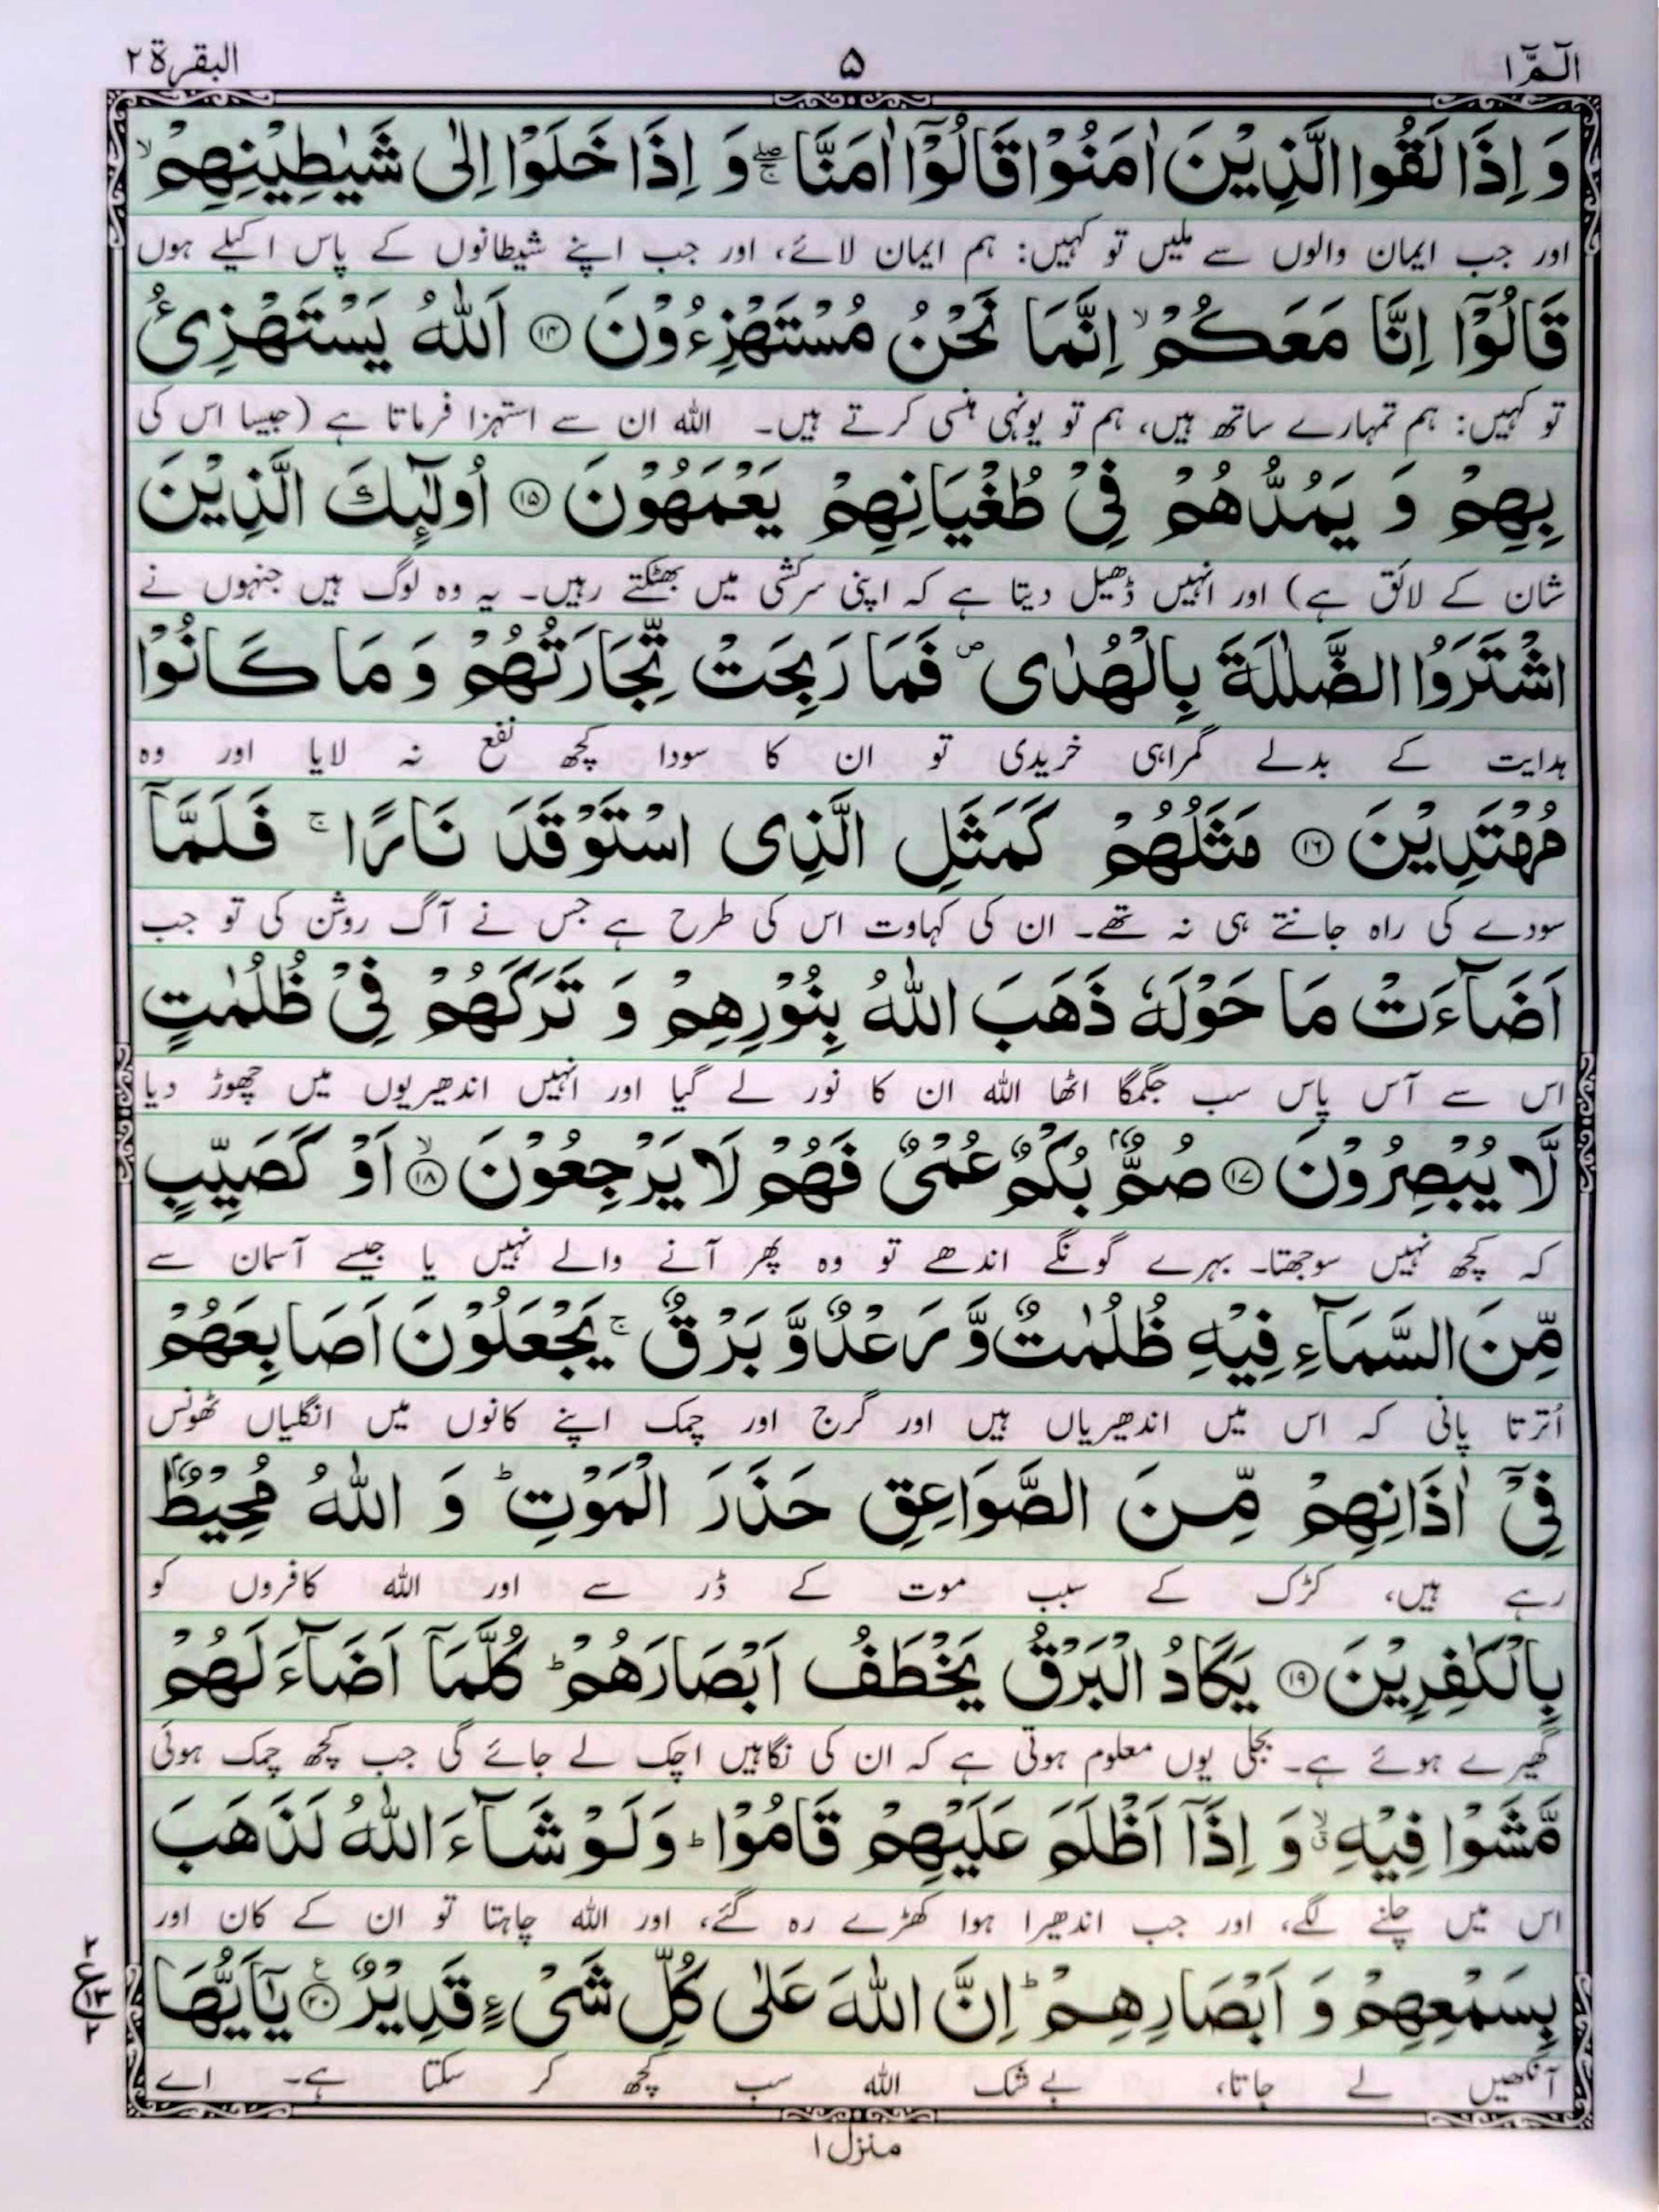 الٓمّٓ ۱
۵
البقرة ۲
وَ اِذَا لَقُوا الَّذِیْنَ اٰمَنُوْا قَالُوْۤا اٰمَنَّا ۚۖ وَ اِذَا خَلَوْا اِلٰی شَیٰطِیْنِهِمْ ۙ
اور جب ایمان والوں سے ملیں تو کہیں: ہم ایمان لائے، اور جب اپنے شیطانوں کے پاس اکیلے ہوں
قَالُوْۤا اِنَّا مَعَكُمْ ۙ اِنَّمَا نَحْنُ مُسْتَهْزِءُوْنَ ﴿۱۴﴾ اَللّٰهُ یَسْتَهْزِئُ
تو کہیں: ہم تمہارے ساتھ ہیں، ہم تو یونہی ہنسی کرتے ہیں۔ اللہ ان سے استہزا فرماتا ہے (جیسا اس کی
بِهِمْ وَ یَمُدُّهُمْ فِیْ طُغْیَانِهِمْ یَعْمَهُوْنَ ﴿۱۵﴾ اُولٰٓىِٕكَ الَّذِیْنَ
شان کے لائق ہے) اور انہیں ڈھیل دیتا ہے کہ اپنی سرکشی میں بھٹکتے رہیں۔ یہ وہ لوگ ہیں جنہوں نے
اشْتَرَوُا الضَّلٰلَةَ بِالْهُدٰی ۪ فَمَا رَبِحَتْ تِّجَارَتُهُمْ وَ مَا كَانُوْا
ہدایت کے بدلے گمراہی خریدی تو ان کا سودا کچھ نفع نہ لایا اور وہ
مُهْتَدِیْنَ ﴿۱۶﴾ مَثَلُهُمْ كَمَثَلِ الَّذِی اسْتَوْقَدَ نَارًا ۚ فَلَمَّاۤ
سودے کی راہ جانتے ہی نہ تھے۔ ان کی کہاوت اس کی طرح ہے جس نے آگ روشن کی تو جب
اَضَآءَتْ مَا حَوْلَهٗ ذَهَبَ اللّٰهُ بِنُوْرِهِمْ وَ تَرَكَهُمْ فِیْ ظُلُمٰتٍ
اس سے آس پاس سب جگمگا اٹھا اللہ ان کا نور لے گیا اور انہیں اندھیریوں میں چھوڑ دیا
لَّا یُبْصِرُوْنَ ﴿۱۷﴾ صُمٌّۢ بُكْمٌ عُمْیٌ فَهُمْ لَا یَرْجِعُوْنَ ﴿۱۸﴾ ۙ اَوْ كَصَیِّبٍ
کہ کچھ نہیں سوجھتا۔ بہرے گونگے اندھے تو وہ پھر آنے والے نہیں یا جیسے آسمان سے
مِّنَ السَّمَآءِ فِیْهِ ظُلُمٰتٌ وَّ رَعْدٌ وَّ بَرْقٌ ۚ یَجْعَلُوْنَ اَصَابِعَهُمْ
اُترتا پانی کہ اس میں اندھیریاں ہیں اور گرج اور چمک اپنے کانوں میں انگلیاں ٹھونس
فِیْۤ اٰذَانِهِمْ مِّنَ الصَّوَاعِقِ حَذَرَ الْمَوْتِ ؕ وَ اللّٰهُ مُحِیْطٌۢ
رہے ہیں، کڑک کے سبب موت کے ڈر سے اور اللہ کافروں کو
بِالْكٰفِرِیْنَ ﴿۱۹﴾ یَكَادُ الْبَرْقُ یَخْطَفُ اَبْصَارَهُمْ ؕ كُلَّمَاۤ اَضَآءَ لَهُمْ
گھیرے ہوئے ہے۔ بجلی یوں معلوم ہوتی ہے کہ ان کی نگاہیں اچک لے جائے گی جب کچھ چمک ہوئی
مَّشَوْا فِیْهِ ۙۗ وَ اِذَاۤ اَظْلَمَ عَلَیْهِمْ قَامُوْا ؕ وَ لَوْ شَآءَ اللّٰهُ لَذَهَبَ
اس میں چلنے لگے، اور جب اندھیرا ہوا کھڑے رہ گئے، اور اللہ چاہتا تو ان کے کان اور
بِسَمْعِهِمْ وَ اَبْصَارِهِمْ ؕ اِنَّ اللّٰهَ عَلٰی كُلِّ شَیْءٍ قَدِیْرٌ ﴿۲۰﴾ ۧ یٰۤاَیُّهَا
۲ ع ۱۳ ۲
آنکھیں لے جاتا، بے شک اللہ سب کچھ کر سکتا ہے۔ اے
منزل ۱